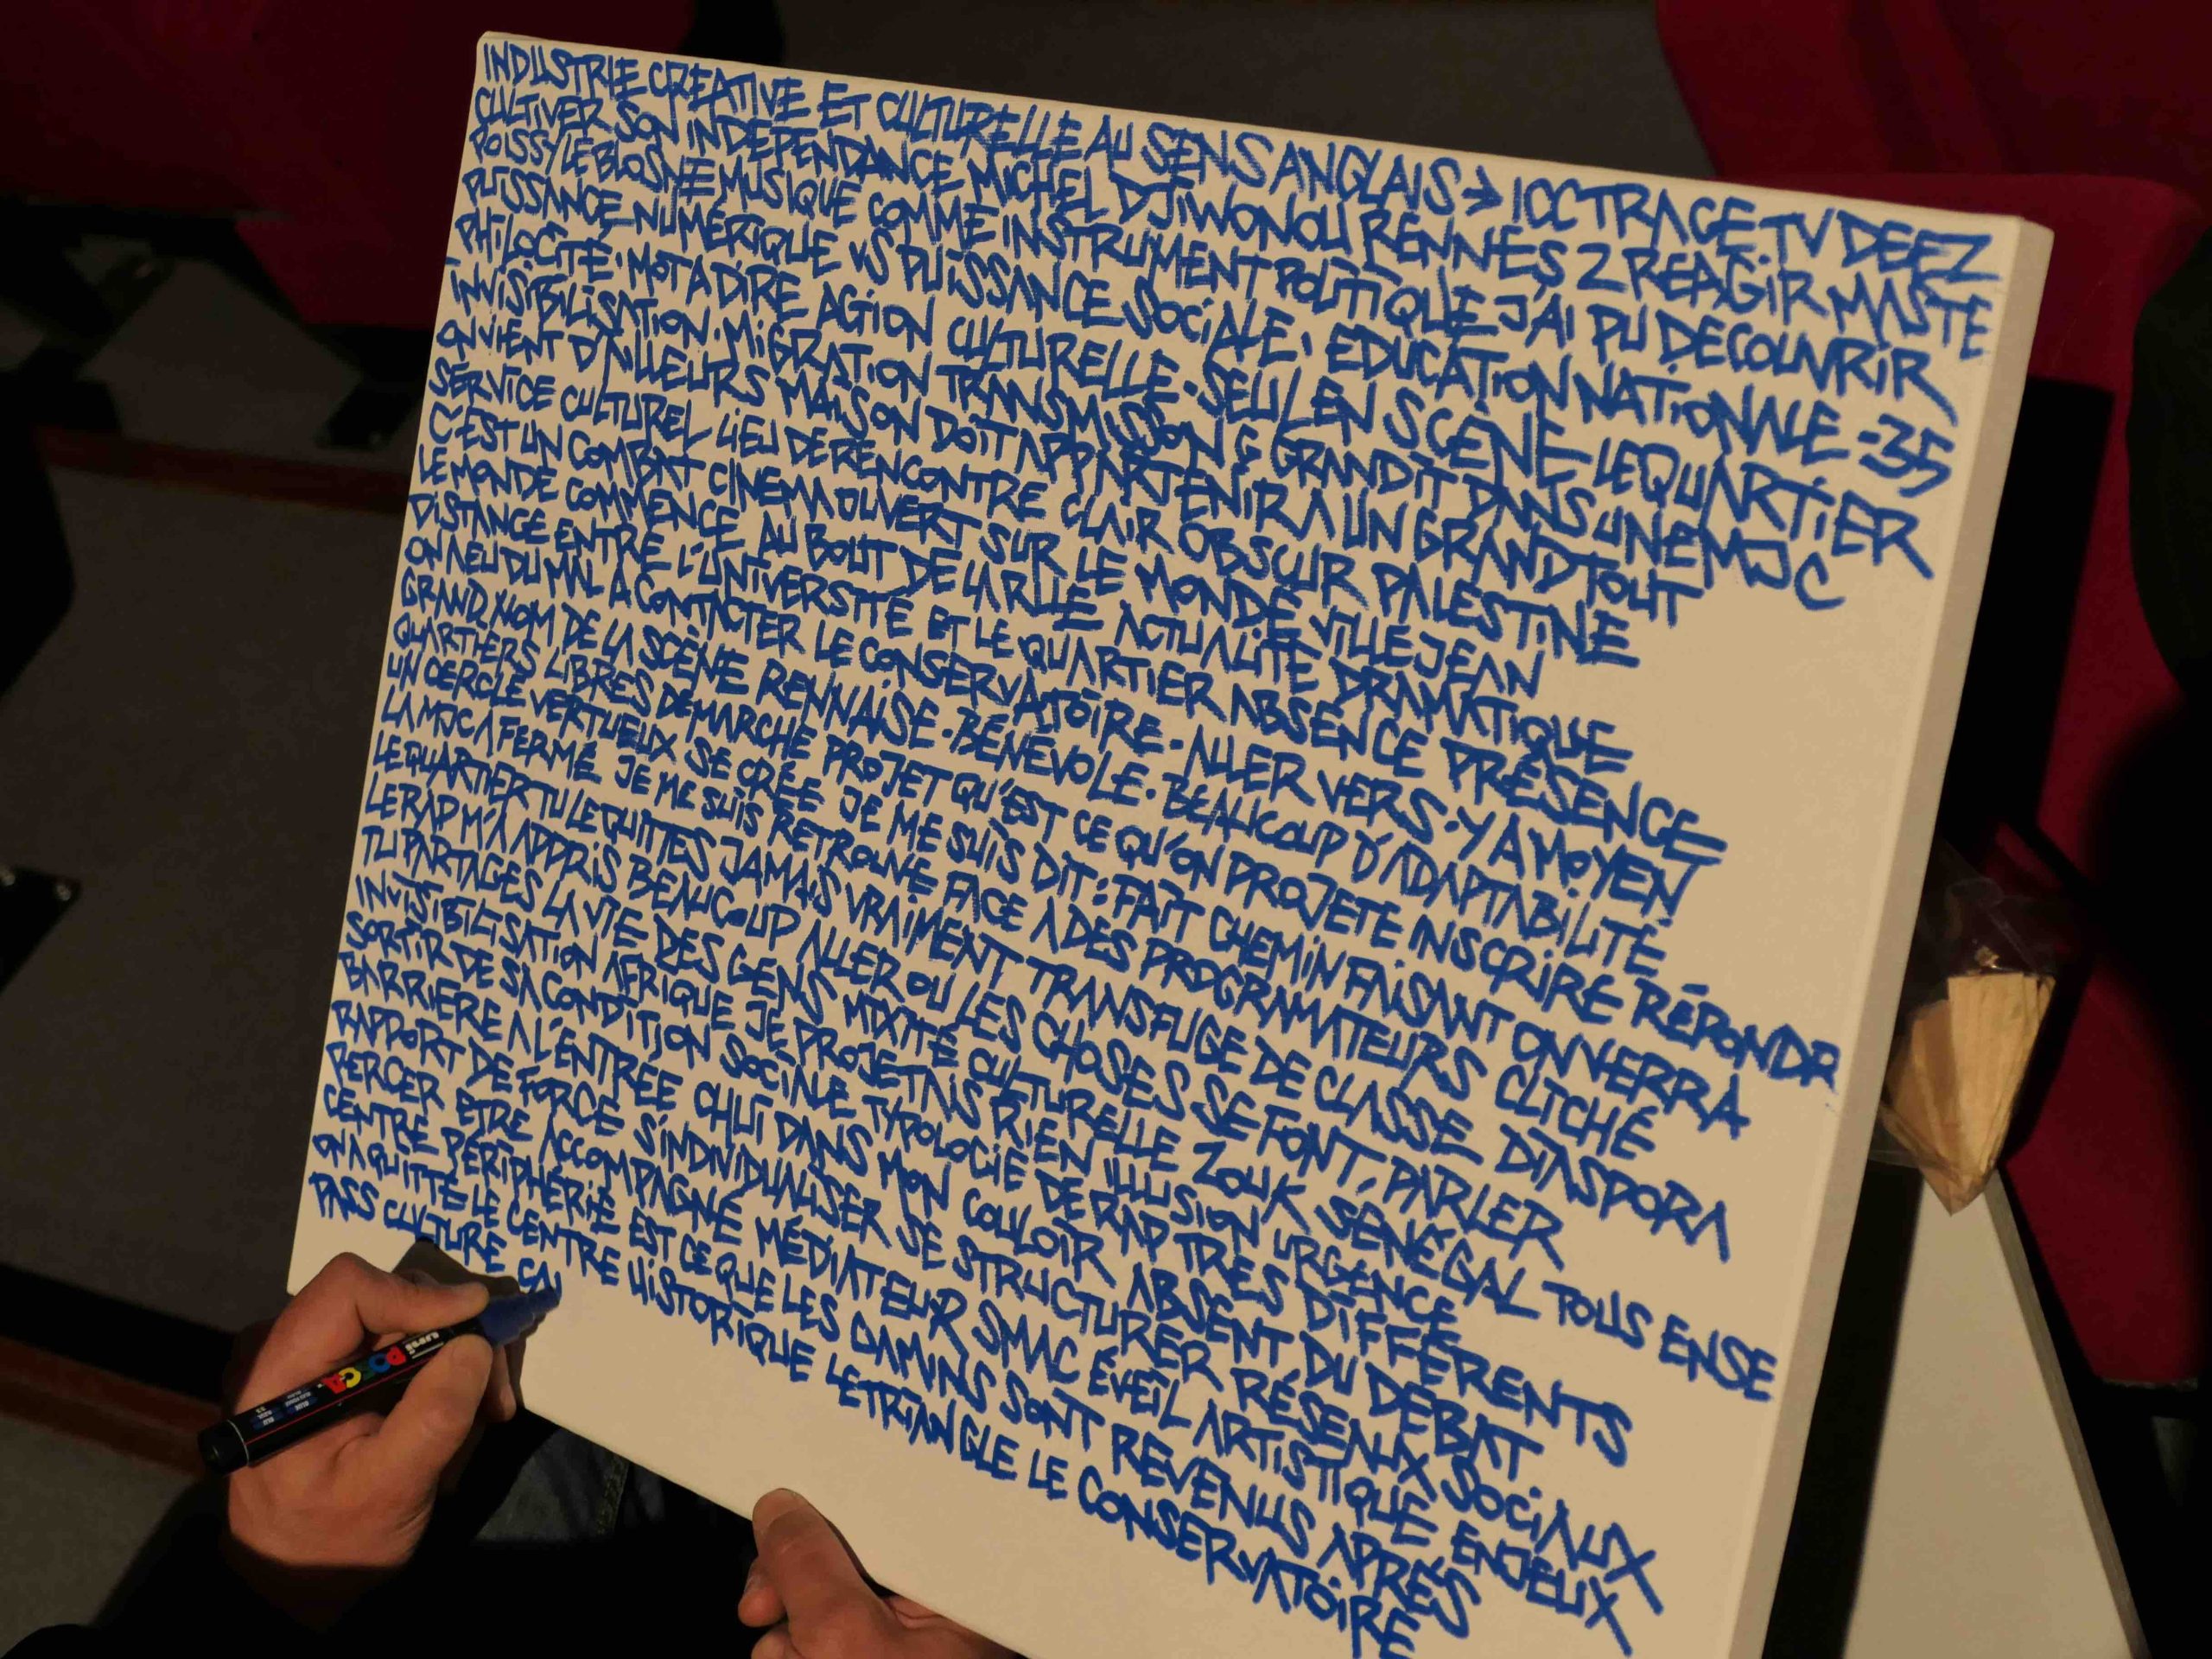 INDUSTRIE CREATIVE ET CULTURELLE AU SENS ANGLAIS → ICC TRACE TV DEEZ
CULTIVER SON INDEPENDANCE MICHEL DJIWONOU RENNES 2 REAGIR MASTE
POISSY LE BLOSNE MUSIQUE COMME INSTRUMENT POLITIQUE J'AI PU DECOUVRIR
PUISSANCE NUMÉRIQUE VS PUISSANCE SOCIALE. EDUCATION NATIONALE -35
PHILOCITÉ. MOT A DIRE ACTION CULTURELLE - SEUL EN SCÈNE LE QUARTIER
INVISIBILISATION. MIGRATION TRANSMISSON & GRANDIT DANS UNE MJC
ON VIENT D'AILLEURS MAISON DOIT APPARTENIR A UN GRAND TOUT
SERVICE CULTUREL LIEU DE RENCONTRE CLAIR OBSCUR PALESTINE
C'EST UN COMBAT CINEMA OUVERT SUR LE MONDE VILLE JEAN
LE MONDE COMMENCE AU BOUT DE LA RUE ACTUALITÉ DRAMATIQUE
DISTANCE ENTRE L'UNIVERSITÉ ET LE QUARTIER ABSENCE PRÉSENCE
ON A EU DU MAL A CONTACTER LE CONSERVATOIRE - ALLER VERS. Y A MOYEN
GRAND NOM DE LA SCÈNE RENNAISE. BÉNÉVOLE. BEAUCOUP D'ADAPTABILITÉ
QUARTIERS LIBRES DEMARCHE PROJET QU'EST CE QU'ON PROJETE INSCRIRE RÉPONDR
UN CERCLE VERTUEUX SE CRÉE JE ME SUIS DIT : FAIT CHEMIN FAISANT ON VERRA
LA MJC A FERMÉ JE ME SUIS RETROUVÉ FACE A DES PROGRAMMATEURS CLICHÉ
LE QUARTIER TU LE QUITTES JAMAIS VRAIMENT TRANSFUGE DE CLASSE DIASPORA
LE RAP M'A APPRIS BEAUCOUP ALLER OU LES CHOSES SE FONT, PARLER
TU PARTAGES LA VIE DES GENS MIXITÉ CULTURELLE ZOUK SÉNÉGAL TOUS ENSE
INVISIBILISATION AFRIQUE JE PROJETAIS RIEN ILLUSION URGENCE
SORTIR DE SA CONDITION SOCIALE TYPOLOGIE DE RAP TRÈS DIFFÉRENTS
BARRIERE A L'ENTREE CHUT DANS MON COULOIR ABSENT DU DÉBAT
RAPPORT DE FORCE S'INDIVIDUALISER SE STRUCTURER RÉSEAUX SOCIAUX
PERCER ETRE ACCOMPAGNÉ MÉDIATEUR SMAC ÉVEIL ARTISTIQUE ENJEUX
CENTRE PÉRIPHÉRIE EST CE QUE LES GAMINS SONT REVENUS APRÈS
ON A QUITTÉ LE CENTRE HISTORIQUE LE TRIANGLE LE CONSERVATOIRE
PASS CULTURE ÇA
uni POSCA